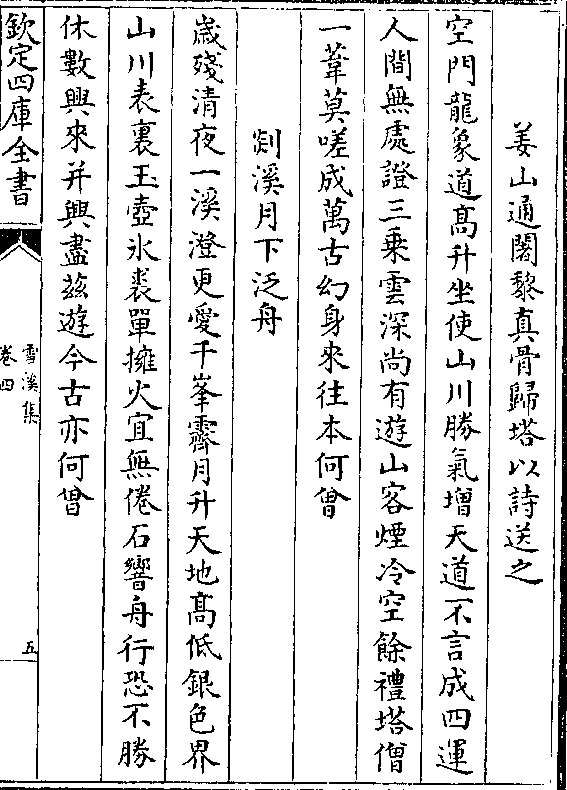 姜山通闍黎真骨歸塔以詩送之
空門龍象道髙升坐使山川勝氣增天道不言成四運
人間無處證三乗雲深尚有遊山客煙冷空餘禮塔僧
一葦莫嗟成萬古幻身來往本何曾
剡溪月下泛舟
歳殘清夜一溪澄更愛千峯霽月升天地髙低銀色界
山川表裏玉壺氷裘單擁火宜無倦石響舟行恐不勝
休數興來并興盡兹遊今古亦何曾
欽定四庫全書
雪溪集
卷四
五